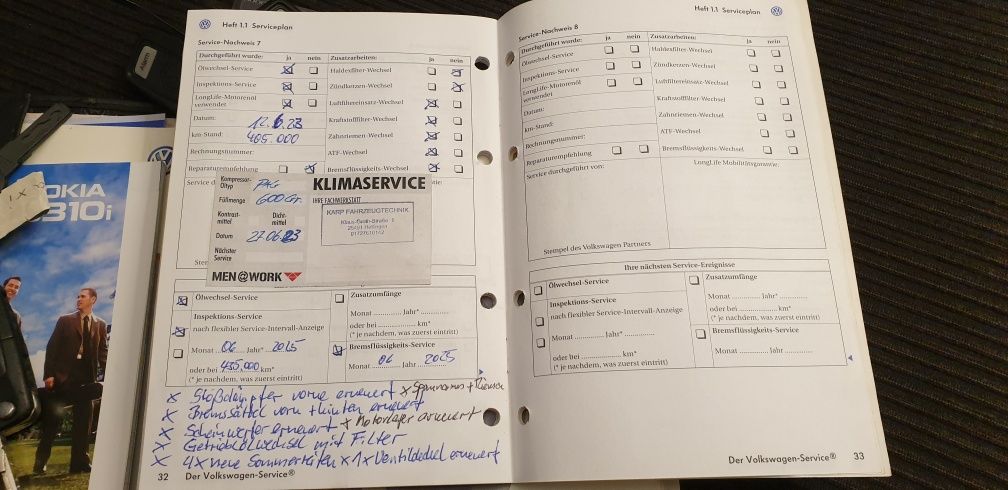 Heft 1.1 Serviceplan
Service-Nachweis 7
Durchgeführt wurde: ja nein
Zusatzarbeiten: ja nein
Ölwechsel-Service
Haldexfilter-Wechsel
Inspektions-Service
Zündkerzen-Wechsel
LongLife-Motorenöl
verwendet
Luftfiltereinsatz-Wechsel
Datum: 12.6.23
Kraftstofffilter-Wechsel
km-Stand: 405.000
Zahnriemen-Wechsel
Rechnungsnummer:
ATF-Wechsel
Reparaturempfehlung
Bremsflüssigkeits-Wechsel
Service d
Kompressor-
Öltyp PAG
KLIMASERVICE
Füllmenge 600 Gr.
IHRE FACHWERKSTATT
Kontrast-
mittel
Dicht-
mittel
KARP FAHRZEUGTECHNIK
Datum 27.06.23
Nächster
Service
MEN@WORK
Ölwechsel-Service
Zusatzumfänge
Inspektions-Service
nach flexibler Service-Intervall-Anzeige
Monat Jahr*
oder bei km*
(* je nachdem, was zuerst eintritt)
Monat 06 Jahr* 2025
oder bei 435.000 km*
(* je nachdem, was zuerst eintritt)
Bremsflüssigkeits-Service
Monat 06 Jahr 2025
x Stoßdämpfer vorne erneuert x
x Bremssättel vorn + hinten erneuert
x Scheinwerfer erneuert x Motorlager erneuert
x Getriebeölwechsel mit Filter
x 4x neue Sommerreifen x 1x Ventildeckel erneuert
32 Der Volkswagen-Service®
Heft 1.1 Serviceplan
Service-Nachweis 8
Durchgeführt wurde: ja nein
Zusatzarbeiten: ja nein
Ölwechsel-Service
Haldexfilter-Wechsel
Inspektions-Service
Zündkerzen-Wechsel
LongLife-Motorenöl
verwendet
Luftfiltereinsatz-Wechsel
Datum:
Kraftstofffilter-Wechsel
km-Stand:
Zahnriemen-Wechsel
Rechnungsnummer:
ATF-Wechsel
Reparaturempfehlung
Bremsflüssigkeits-Wechsel
Service durchgeführt von:
LongLife Mobilitätsgarantie:
Stempel des Volkswagen Partners
Ihre nächsten Service-Ereignisse
Ölwechsel-Service
Zusatzumfänge
Inspektions-Service
nach flexibler Service-Intervall-Anzeige
Monat Jahr*
oder bei km*
(* je nachdem, was zuerst eintritt)
Monat Jahr*
oder bei km*
(* je nachdem, was zuerst eintritt)
Bremsflüssigkeits-Service
Monat Jahr
Der Volkswagen-Service® 33
OKIA
310i